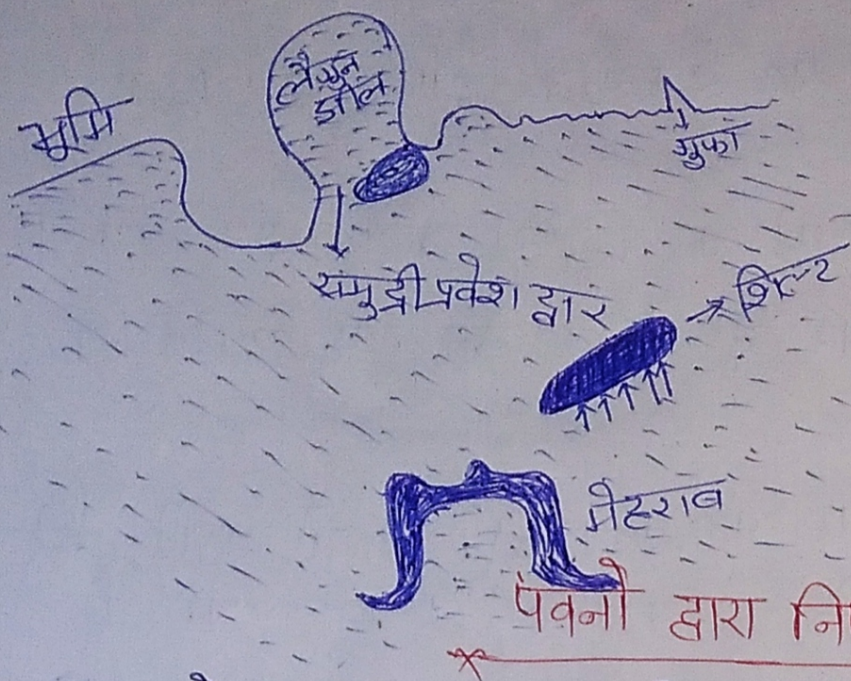 लैगून
झील
भूमि
गुफा
समुद्री प्रवेश द्वार
शिल्ट
मेहराब
पवनो द्वारा नि